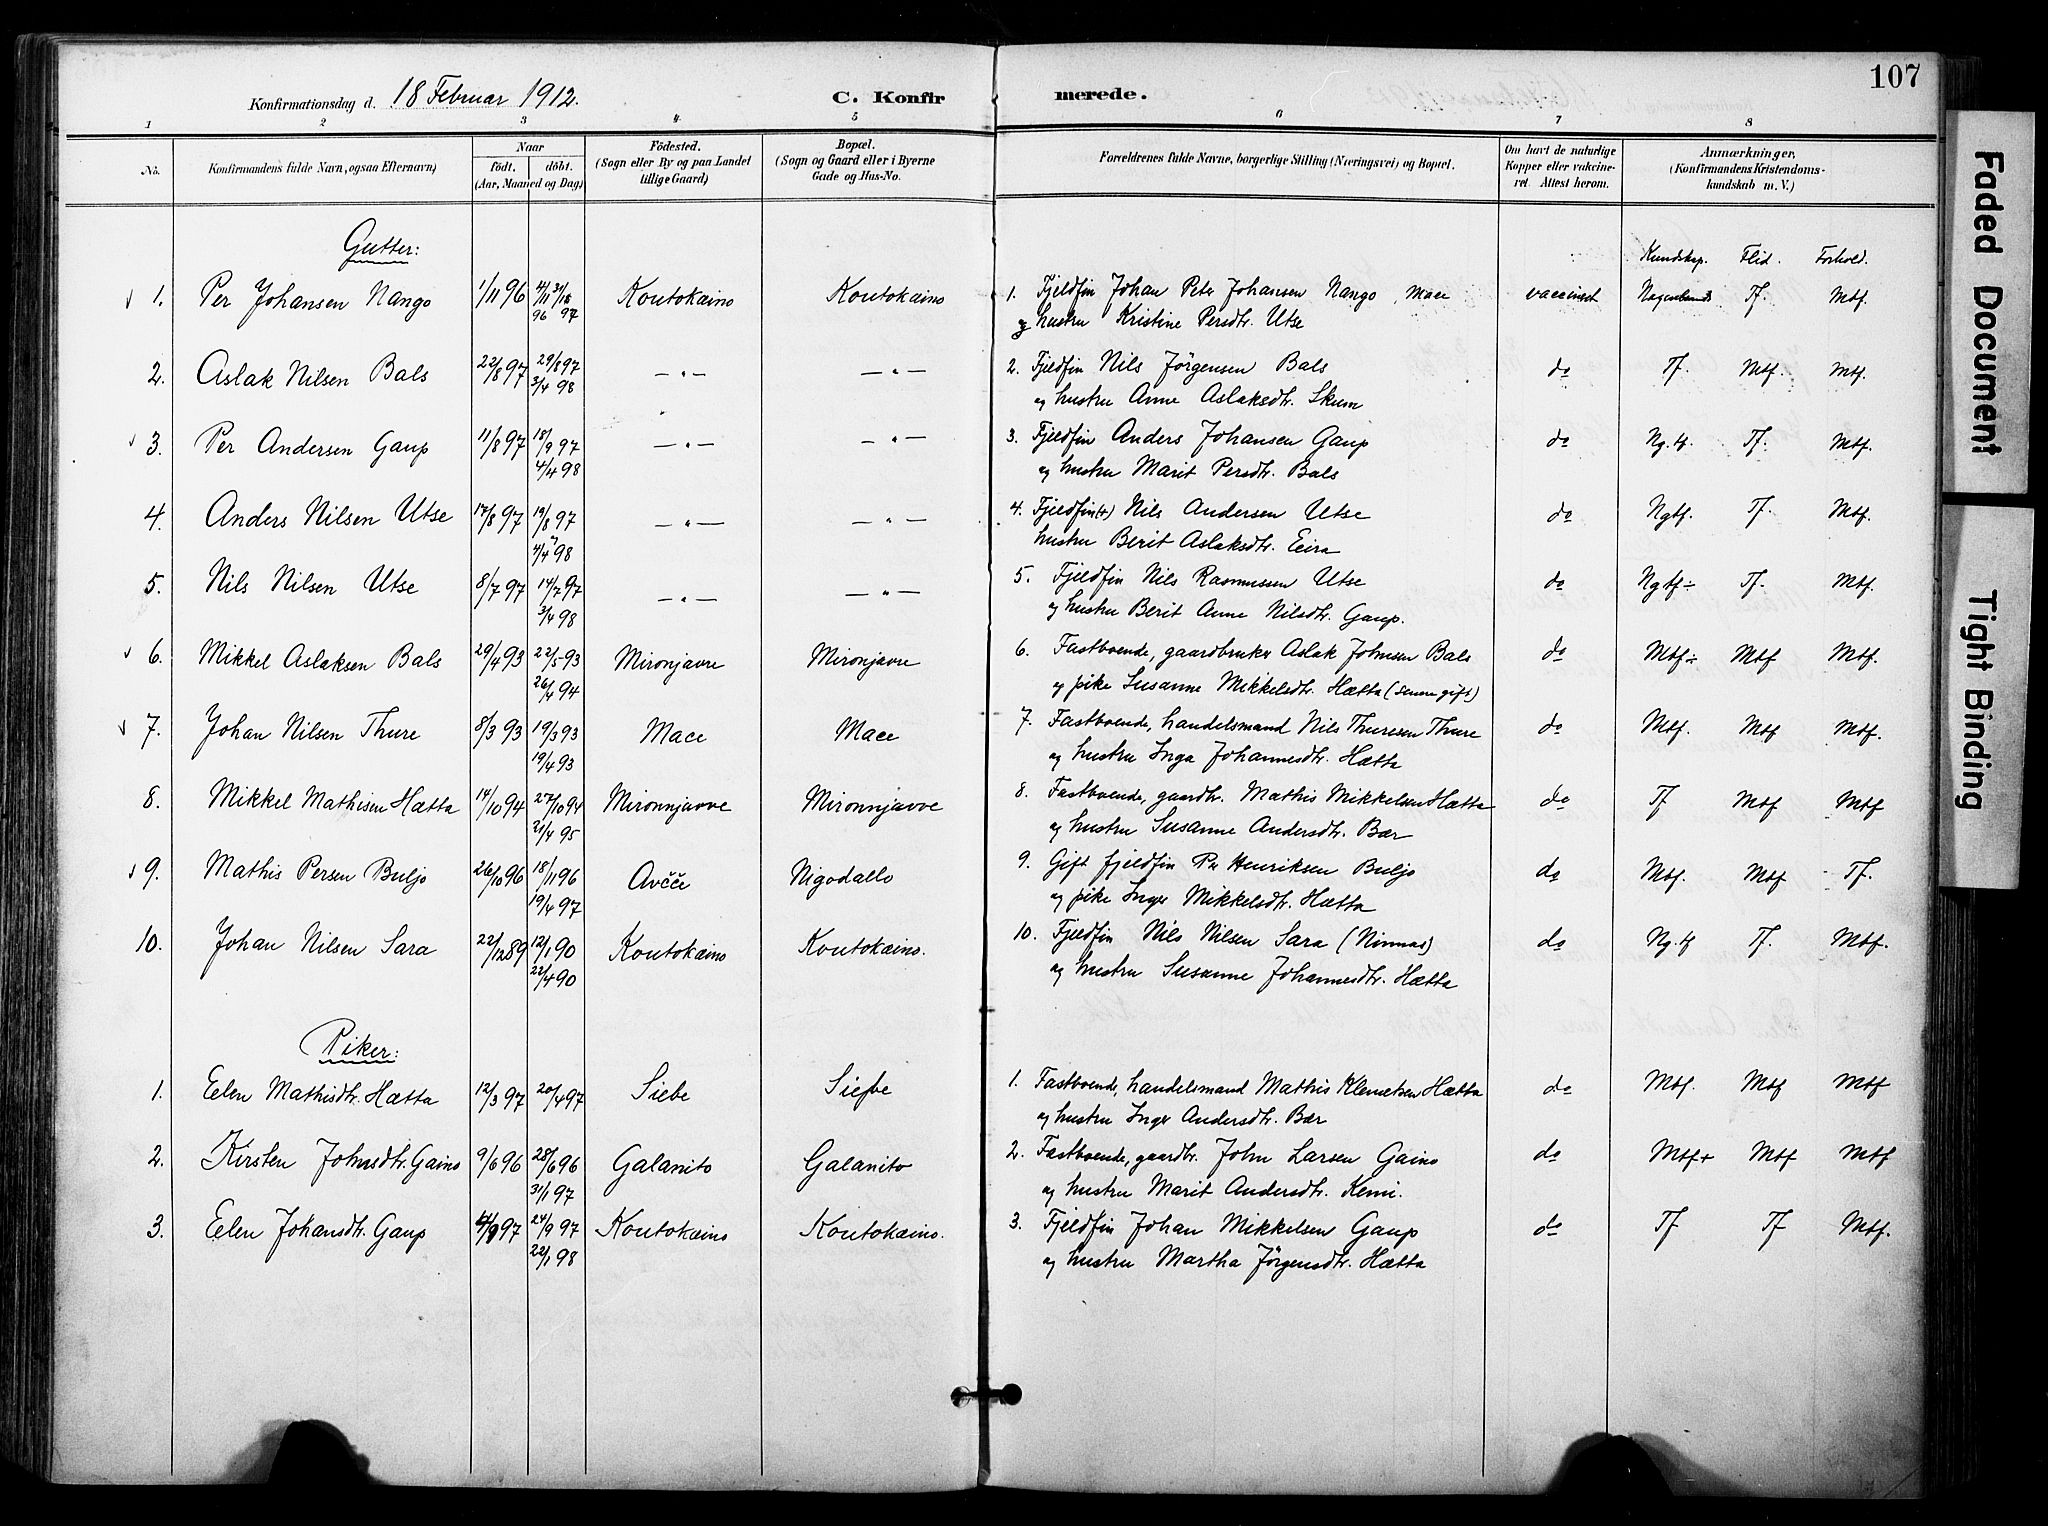 107
Konfirmationsdag d. 18 Februar 1912. C. Konfirmerede.
1 2 3 4 5 6 7 8
No. Konfirmandens fulde Navn, ogsaa Efternavn) Naar födt. döbt. (Aar, Maaned og Dag) Födested. (Sogn eller By og paa Landet tillige Gaard) Bopæl. (Sogn og Gaard eller i Byerne Gade og Hus-No. Forældrenes fulde Navne, borgerlige Stilling (Næringsvei) og Bopæl. Om havt de naturlige Kopper eller vakcineret. Attest herom. Anmærkninger. (Konfirmandens Kristendomskundskab m. V.)
Gutter: Kundskap. Flid. Forhold.
1. Per Johansen Nango 1/11 96 4/11 96 Koutokæino Koutokæino 1. Fjeldfin Johan Peter Johansen Nango, Mace vaccineret Tf. Mtf.
og hustru Kristine Persdtr. Utse
2. Aslak Nilsen Bals 22/8 97 29/8 97 — " — — " — 2. Fjeldfin Nils Jørgensen Bals do Tf. Mtf. Mtf.
3/4 98 og hustru Anne Aslaksdtr. Skum
3. Per Andersen Gaup 11/8 97 18/9 97 — " — — " — 3. Fjeldfin Anders Johansen Gaup do Ng. tf. Tf. Mtf.
4/4 98 og hustru Marit Persdtr. Bals
4. Anders Nilsen Utse 17/8 97 19/8 97 — " — — " — 4. Fjeldfin (+) Nils Andersen Utse do Ngtf. Tf. Mtf.
4/4 98 hustru Berit Aslaksdtr. Eira
5. Nils Nilsen Utse 8/7 97 14/7 97 — " — — " — 5. Fjeldfin Nils Rasmussen Utse do Ngtf÷ Tf. Mtf.
3/4 98 og hustru Berit Anne Nilsdtr. Gaup.
6. Mikkel Aslaksen Bals 29/4 93 22/5 93 Mironjavre Mironjavre 6. Fastboende, gaardbruker Aslak Johnsen Bals do Mtf÷ Mtf Mtf.
26/4 94 og pike Susanne Mikkelsdtr. Hætta (senere gift)
7. Johan Nilsen Thure 8/3 93 19/3 93 Mace Mace 7. Fastboende, handelsmand Nils Thuresen Thure do Mtf. Mtf Mtf.
19/4 93 og hustru Inga Johannesdtr. Hætta
8. Mikkel Mathisen Hætta 14/10 94 27/10 94 Mironnjavve Mironnjavve 8. Fastboende, gaardbr. Mathis Mikkelsen Hætta do Tf Mtf Mtf
21/4 95 og hustru Susanne Andersdtr. Bær
9. Mathis Persen Buljo 26/10 96 18/11 96 Avčče Nigodallo 9. Gift fjeldfin Per Henriksen Buljo do Mtf. Mtf Tf.
19/4 97 og pike Inger Mikkelsdtr. Hætta
10. Johan Nilsen Sara 22/12 89 12/1 90 Koutokæino Koutokæino. 10. Fjeldfin Nils Nilsen Sara (Ninnas) do Ng. tf Tf. Mtf.
22/4 90 og hustru Susanne Johannesdtr. Hætta
Piker:
1. Eelen Mathisdtr. Hætta 12/3 97 20/4 97 Siebe Siebe 1. Fastboende, handelsmand Mathis Klemetsen Hætta do Mtf. Mtf Mtf
og hustru Inger Andersdtr. Bær
2. Kirsten Johnsdtr. Gaino 9/6 96 28/6 96 Galanito Galanito 2. Fastboende, gaardbr. John Larsen Gaino do Mtf+ Mtf Mtf
31/1 97 og hustru Marit Andersdtr. Kemi.
3. Eelen Johansdtr. Gaup 4/9 97 24/9 97 Koutokæino Koutokæino. 3. Fjeldfin Johan Mikkelsen Gaup do Tf Tf Mtf.
22/1 98 og hustru Martha Jørgensdtr. Hætta
Faded Document
Tight Binding